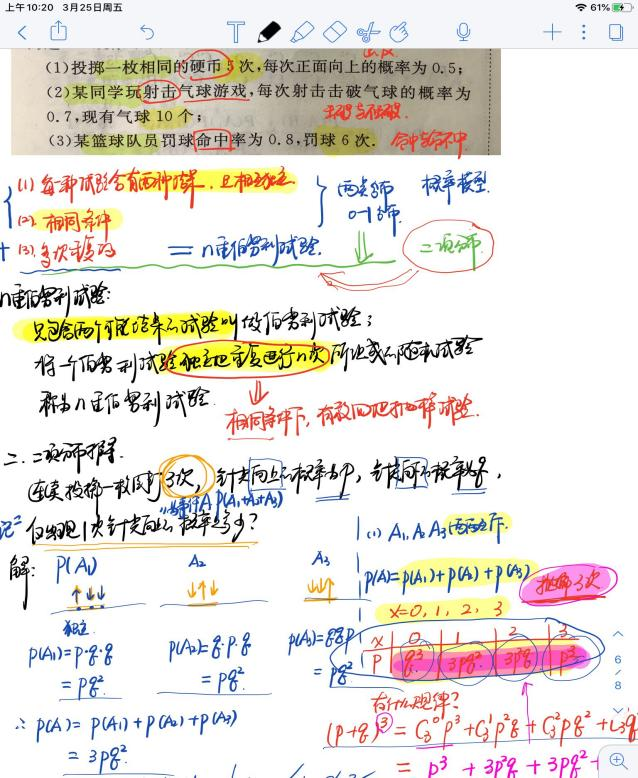 上午10:20 3月25日周五
61%
(1)投掷一枚相同的硬币5次,每次正面向上的概率为0.5;
(2)某同学玩射击气球游戏,每次射击击破气球的概率为
0.7,现有气球10个; 击破与不击破.
(3)某篮球队员罚球命中率为0.8,罚球6次. 命中与命不中
(1) 每一种试验含有两种结果, 且相互独立. 两点分布 概率模型.
(2). 相同条件 0-1分布.
+ (3). 多次重复的 = n重伯努利试验. 二项分布.
n重伯努利试验:
只包含两个可能结果的试验叫做伯努利试验;
将一个伯努利试验独立地重复进行n次所组成的随机试验
称为n重伯努利试验.
相同条件下, 有放回地抽样试验.
二.二项分布推导.
连续投掷一枚图钉3次, 针尖向上的概率为p, 针尖向下的概率为q,
"事件A P(A₁+A₂+A₃)
仅出现1次针尖向上的概率是多少?
(1) A₁, A₂, A₃两两互斥.
解: P(A₁) A₂ A₃
P(A)=P(A₁)+P(A₂)+P(A₃) 抛掷3次
↑↓↓ ↓↑↓ ↓↓↑
X=0, 1, 2, 3
独立
P(A₁)=p·q·q P(A₂)=q·p·q P(A₃)=qqp
= pq² = pq². = pq²
X 0 1 2 3
P q³ 3pq² 3p²q p³
有什么规律?
∴ P(A) = P(A₁)+P(A₂)+P(A₃)
= 3pq²
(p+q)³ = C₃⁰p³+C₃¹p²q+C₃²pq²+C₃³q
= p³ + 3p²q + 3pq²+
6/8